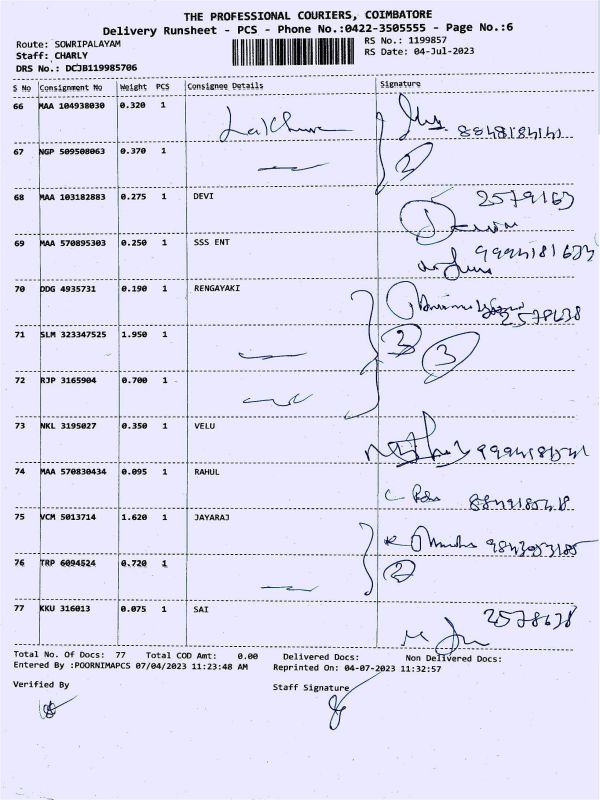 THE PROFESSIONAL COURIERS, COIMBATORE
Delivery Runsheet - PCS - Phone No.:0422-3505555 - Page No.:6
Route: SOWRIPALAYAM
RS No.: 1199857
Staff: CHARLY
RS Date: 04-Jul-2023
DRS No.: DCJB119985706
S No Consignment No Weight PCS Consignee Details Signature
66 MAA 104938030 0.320 1
67 NGP 509508063 0.370 1
2
68 MAA 103182883 0.275 1 DEVI
2579163
69 MAA 570895303 0.250 1 SSS ENT
70 DDG 4935731 0.190 1 RENGAYAKI
2578638
71 SLM 323347525 1.950 1
3
72 RJP 3165904 0.700 1
73 NKL 3195027 0.350 1 VELU
74 MAA 570830434 0.095 1 RAHUL
75 VCM 5013714 1.620 1 JAYARAJ
76 TRP 6094524 0.720 1
2
77 KKU 316013 0.075 1 SAI
2578638
Total No. Of Docs: 77 Total COD Amt: 0.00 Delivered Docs: Non Delivered Docs:
Entered By :POORNIMAPCS 07/04/2023 11:23:48 AM Reprinted On: 04-07-2023 11:32:57
Verified By Staff Signature